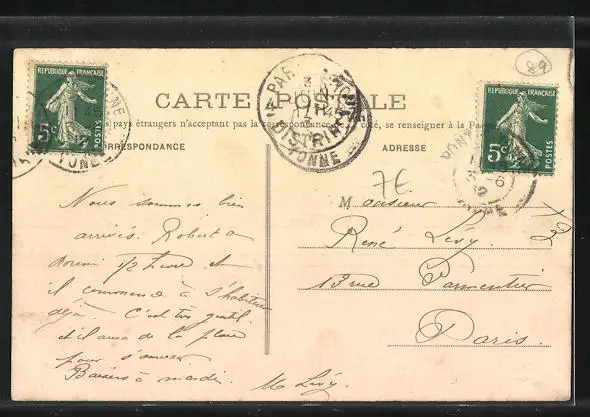 89
REPUBLIQUE FRANÇAISE
5c
POSTES
REPUBLIQUE FRANÇAISE
5c
POSTES
CARTE POSTALE
pays étrangers n'acceptant pas la correspondance côté, se renseigner à la
CORRESPONDANCE
ADRESSE
DISTRIB
YONNE
YONNE
7E
Nous sommes bien
arrivés. Robert a
dormi 1/2 heure et
il commence à s'habituer
déjà. C'est très gentil
et il aura de la place
pour s'amuser
Baisers à mardi.
M Lévy.
Monsieur
René Lévy.
13 rue Parmentier
Paris.